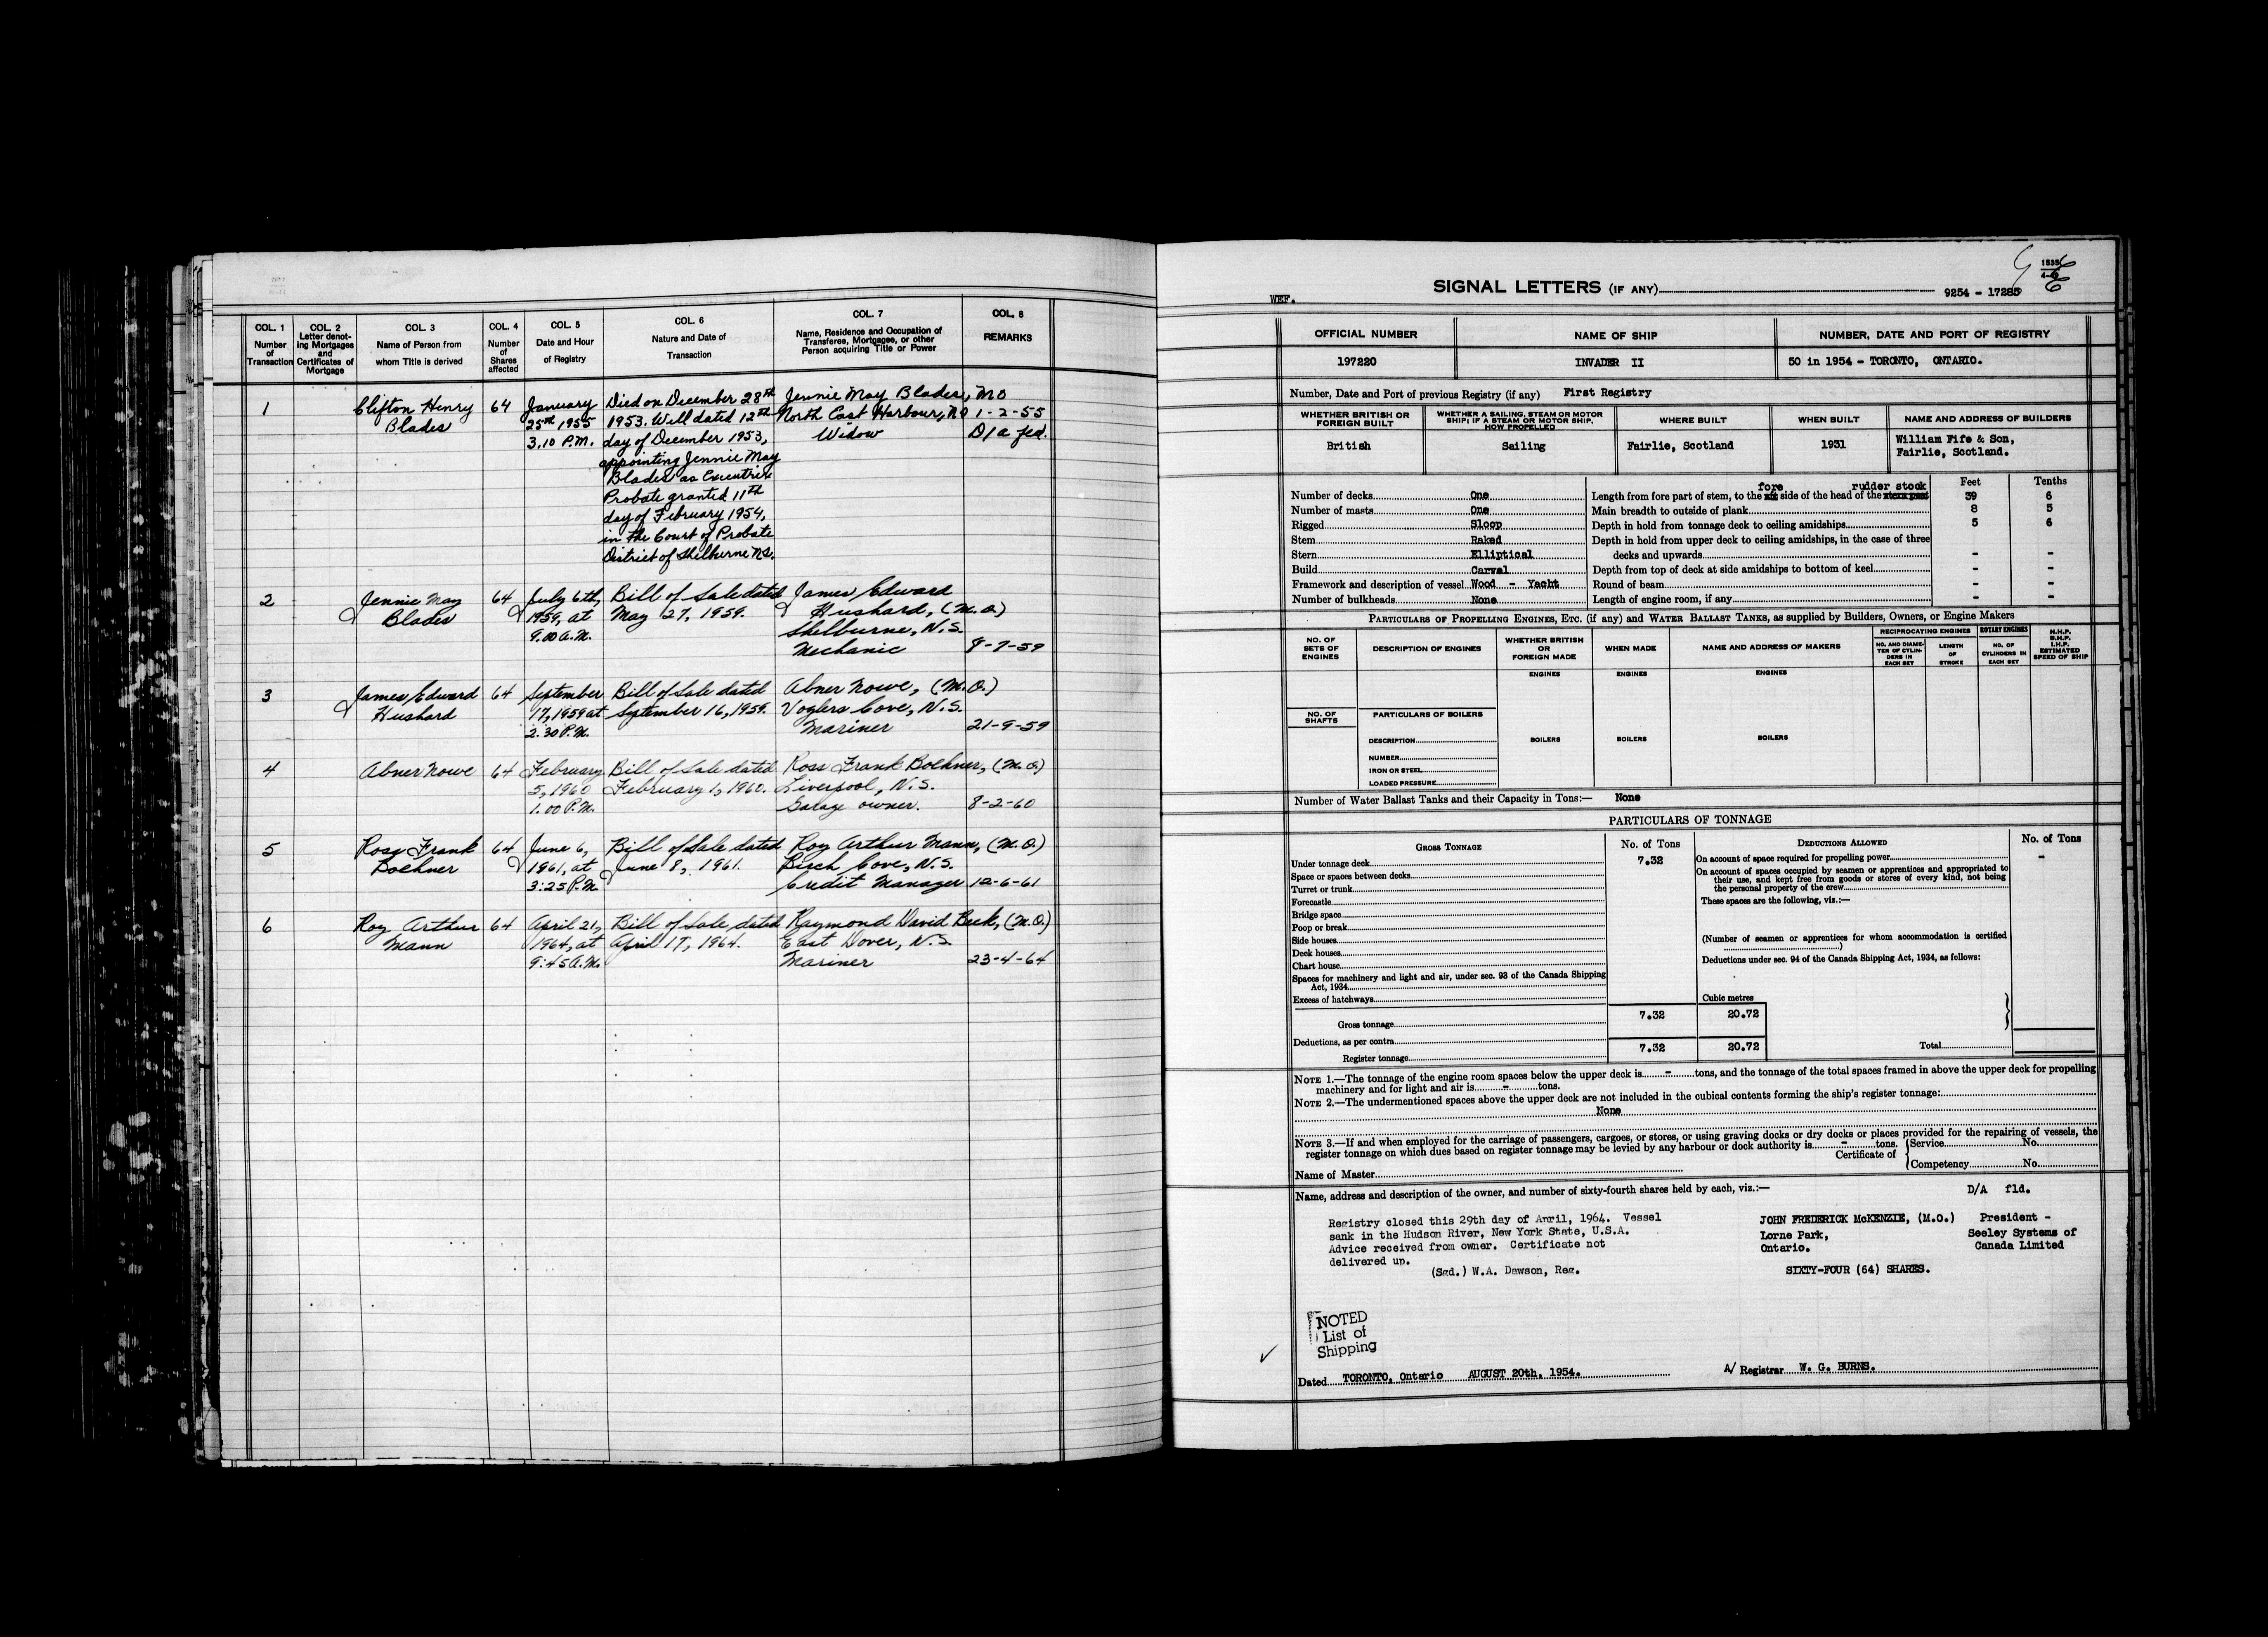 COL. 1
Number
of
Transaction
COL. 2
Letter denot-
ing Mortgages
and
Certificates of
Mortgage
COL. 3
Name of Person from
whom Title is derived
COL. 4
Number
of
Shares
affected
COL. 5
Date and Hour
of Registry
COL. 6
Nature and Date of
Transaction
COL. 7
Name, Residence and Occupation of
Transferee, Mortgagee, or other
Person acquiring Title or Power
COL. 8
REMARKS
1
Clifton Henry
Blades
64
January
25th 1955
3.10 P.M.
Died on December 28th
1953. Will dated 12th
day of December 1953,
appointing Jennie May
Blades as Executrix
Probate granted 11th
day of February 1954,
in the Court of Probate
District of Shelburne N.S.
Jennie May Blades, MO
North East Harbour, NS
Widow
1-2-55
D/a fld.
2
Jennie May
Blades
64
July 6th,
1959, at
9.00 A.M.
Bill of Sale dated
May 27, 1959.
James Edward
Hushard, (M.O)
Shelburne, N.S.
Mechanic
8-7-59
3
James Edward
Hushard
64
September
17, 1959 at
2.30 P.M.
Bill of Sale dated
September 16, 1959.
Abner Nowe, (M.O.)
Voglers Cove, N.S.
Mariner
21-9-59
4
Abner Nowe
64
February
5, 1960
1.00 P.M.
Bill of Sale dated
February 1, 1960.
Ross Frank Boehner, (M.O)
Liverpool, N.S.
Garage owner.
8-2-60
5
Ross Frank
Boehner
64
June 6,
1961, at
3:25 P.M.
Bill of Sale dated
June 8, 1961.
Roy Arthur Mann, (M.O.)
Birch Cove, N.S.
Credit Manager
12-6-61
6
Roy Arthur
Mann
64
April 21,
1964, at
9:45 A.M.
Bill of Sale dated
April 17, 1964.
Raymond David Beck, (M.O.)
East Dover, N.S.
Mariner
23-4-64
WEF.
SIGNAL LETTERS (IF ANY)
1535
4-49
9254 - 17285
OFFICIAL NUMBER
NAME OF SHIP
NUMBER, DATE AND PORT OF REGISTRY
197220
INVADER II
50 in 1954 - TORONTO, ONTARIO.
Number, Date and Port of previous Registry (if any) First Registry
WHETHER BRITISH OR
FOREIGN BUILT
WHETHER A SAILING, STEAM OR MOTOR
SHIP; IF A STEAM OR MOTOR SHIP,
HOW PROPELLED
WHERE BUILT
WHEN BUILT
NAME AND ADDRESS OF BUILDERS
British
Sailing
Fairlie, Scotland
1931
William Fife & Son,
Fairlie, Scotland.
Number of decks One
Number of masts One
Rigged Sloop
Stem Raked
Stern Elliptical
Build Carvel
Framework and description of vessel Wood - Yacht
Number of bulkheads None
Feet
Tenths
fore rudder stock
Length from fore part of stem, to the aft side of the head of the stern post 39 6
Main breadth to outside of plank 8 5
Depth in hold from tonnage deck to ceiling amidships 5 6
Depth in hold from upper deck to ceiling amidships, in the case of three
decks and upwards - -
Depth from top of deck at side amidships to bottom of keel - -
Round of beam - -
Length of engine room, if any - -
PARTICULARS OF PROPELLING ENGINES, ETC. (if any) and WATER BALLAST TANKS, as supplied by Builders, Owners, or Engine Makers
NO. OF
SETS OF
ENGINES
DESCRIPTION OF ENGINES
WHETHER BRITISH
OR
FOREIGN MADE
WHEN MADE
NAME AND ADDRESS OF MAKERS
RECIPROCATING ENGINES
NO. AND DIAME-
TER OF CYLIN-
DERS IN
EACH SET
LENGTH
OF
STROKE
ROTARY ENGINES
NO. OF
CYLINDERS IN
EACH SET
N.H.P.
B.H.P.
I.H.P.
ESTIMATED
SPEED OF SHIP
ENGINES
ENGINES
ENGINES
NO. OF
SHAFTS
PARTICULARS OF BOILERS
DESCRIPTION
NUMBER
IRON OR STEEL
LOADED PRESSURE
BOILERS
BOILERS
BOILERS
Number of Water Ballast Tanks and their Capacity in Tons:— None
PARTICULARS OF TONNAGE
GROSS TONNAGE
No. of Tons
Under tonnage deck 7.32
Space or spaces between decks
Turret or trunk
Forecastle
Bridge space
Poop or break
Side houses
Deck houses
Chart house
Spaces for machinery and light and air, under sec. 93 of the Canada Shipping
Act, 1934
Excess of hatchways
Cubic metres
Gross tonnage 7.32 20.72
Deductions, as per contra
Register tonnage 7.32 20.72
DEDUCTIONS ALLOWED
No. of Tons
On account of space required for propelling power -
On account of spaces occupied by seamen or apprentices and appropriated to
their use, and kept free from goods or stores of every kind, not being
the personal property of the crew
These spaces are the following, viz.:—
(Number of seamen or apprentices for whom accommodation is certified
)
Deductions under sec. 94 of the Canada Shipping Act, 1934, as follows:
Total
NOTE 1.—The tonnage of the engine room spaces below the upper deck is - tons, and the tonnage of the total spaces framed in above the upper deck for propelling
machinery and for light and air is - tons.
NOTE 2.—The undermentioned spaces above the upper deck are not included in the cubical contents forming the ship's register tonnage:
None
NOTE 3.—If and when employed for the carriage of passengers, cargoes, or stores, or using graving docks or dry docks or places provided for the repairing of vessels, the
register tonnage on which dues based on register tonnage may be levied by any harbour or dock authority is - tons.
Certificate of
Service No.
Competency No.
Name of Master
Name, address and description of the owner, and number of sixty-fourth shares held by each, viz.:—
D/A fld.
Registry closed this 29th day of April, 1964. Vessel
sank in the Hudson River, New York State, U.S.A.
Advice received from owner. Certificate not
delivered up.
(Sgd.) W.A. Dawson, Reg.
JOHN FREDERICK McKENZIE, (M.O.)
Lorne Park,
Ontario.
President -
Seeley Systems of
Canada Limited
SIXTY-FOUR (64) SHARES.
NOTED
List of
Shipping
Dated TORONTO, Ontario AUGUST 20th, 1954.
A/ Registrar W. G. BURNS.